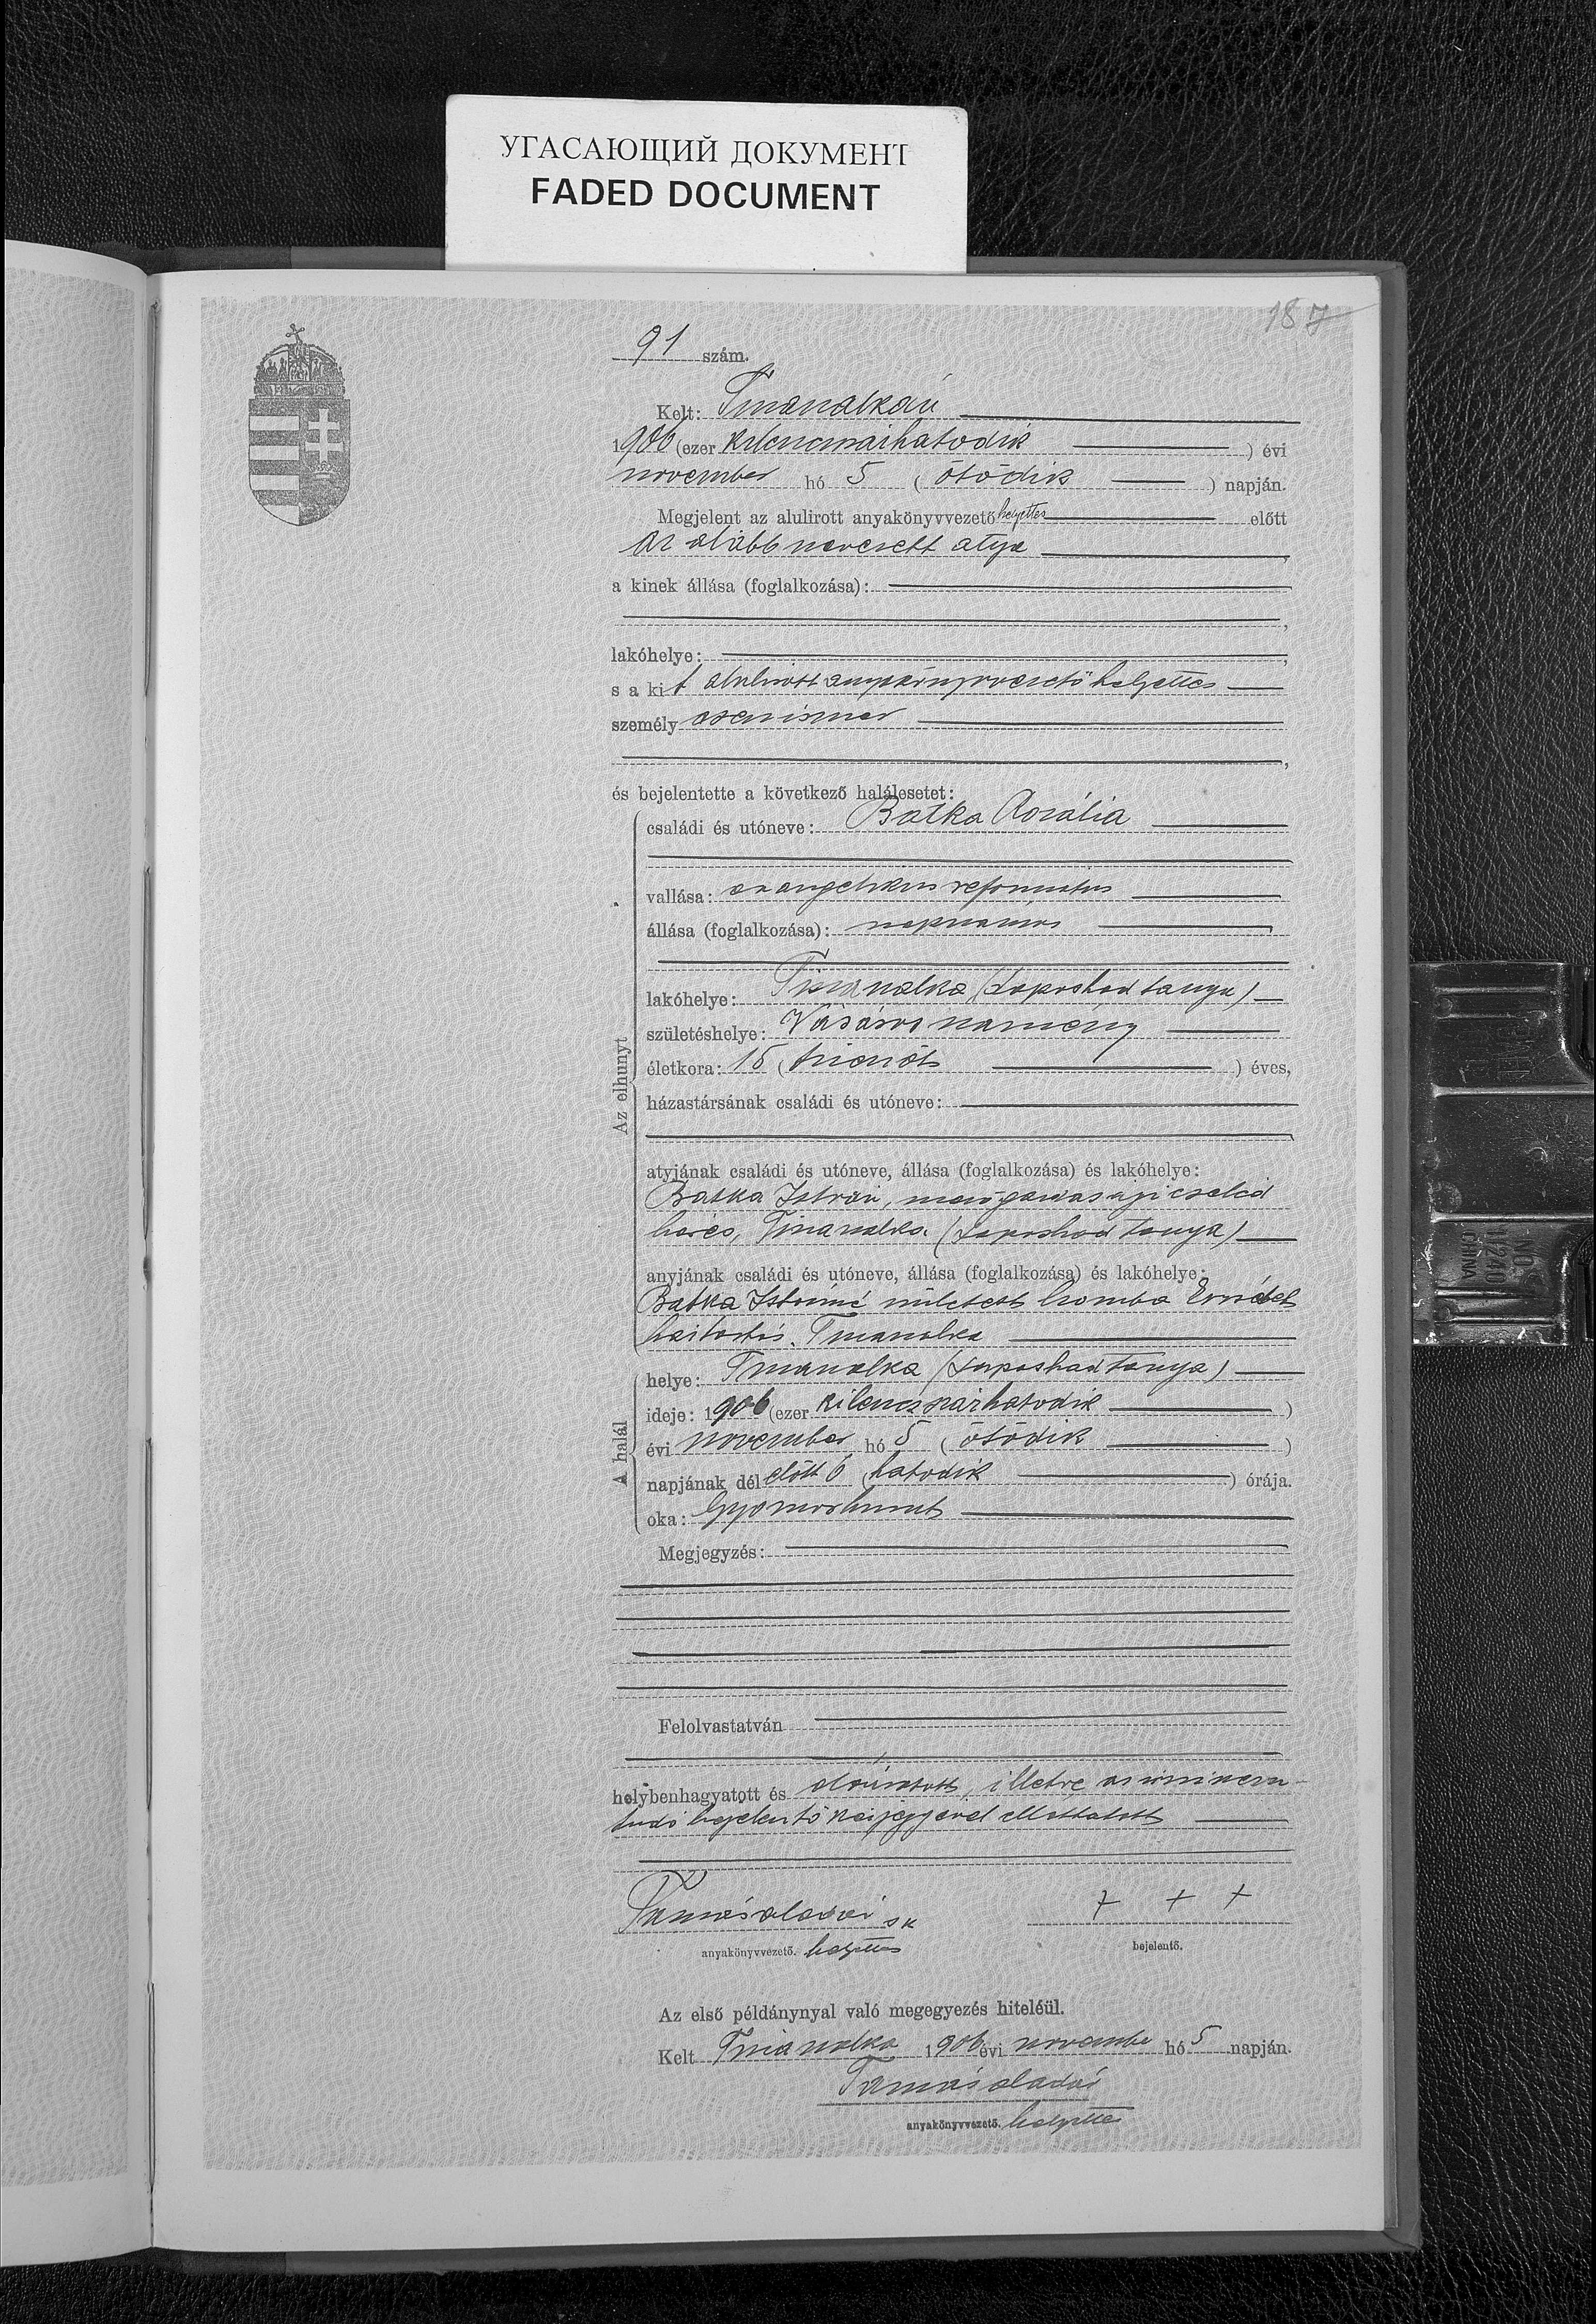 УГАСАЮЩИЙ ДОКУМЕНТ
FADED DOCUMENT
187
91 szám.
Kelt: Tiszanalkán
1906 (ezer kilencszázhatodik) évi
november hó 5 (ötödik) napján.
Megjelent az alulirott anyakönyvvezető helyettes előtt
az alább nevezett atya,
a kinek állása (foglalkozása):
lakóhelye:
s a kit alulirott anyakönyvvezető helyettes
személy
és bejelentette a következő halálesetet:
Az elhunyt
családi és utóneve: Batka Rozália
vallása: evangelikus református
állása (foglalkozása): napszámos
lakóhelye: (Laposhad tanya)
születéshelye: Vásáros namény
életkora: 15 (tizenöt) éves,
házastársának családi és utóneve:
atyjának családi és utóneve, állása (foglalkozása) és lakóhelye:
Batka István, mezőgazdasági cseléd
(Laposhad tanya)
anyjának családi és utóneve, állása (foglalkozása) és lakóhelye:
Batka Istvánné született Erzsébet
háztartás.
A halál
helye: (Laposhad tanya)
ideje: 1906 (ezer kilenczszázhatodik)
évi november hó 5 (ötödik)
napjának dél előtt 6 (hatodik) órája.
oka: Gyomorhurut
Megjegyzés:
Felolvastatván
helybenhagyatott és aláíratott, illetve az írni nem
tudó bejelentő kézjegyével elláttatott
Tamás Aladár sk
anyakönyvvezető. helyettes
+ + +
bejelentő.
Az első példánynyal való megegyezés hiteléül.
Kelt 1906 évi november hó 5 napján.
Tamás Aladár
anyakönyvvezető. helyettes
NO.
11240
CHINA